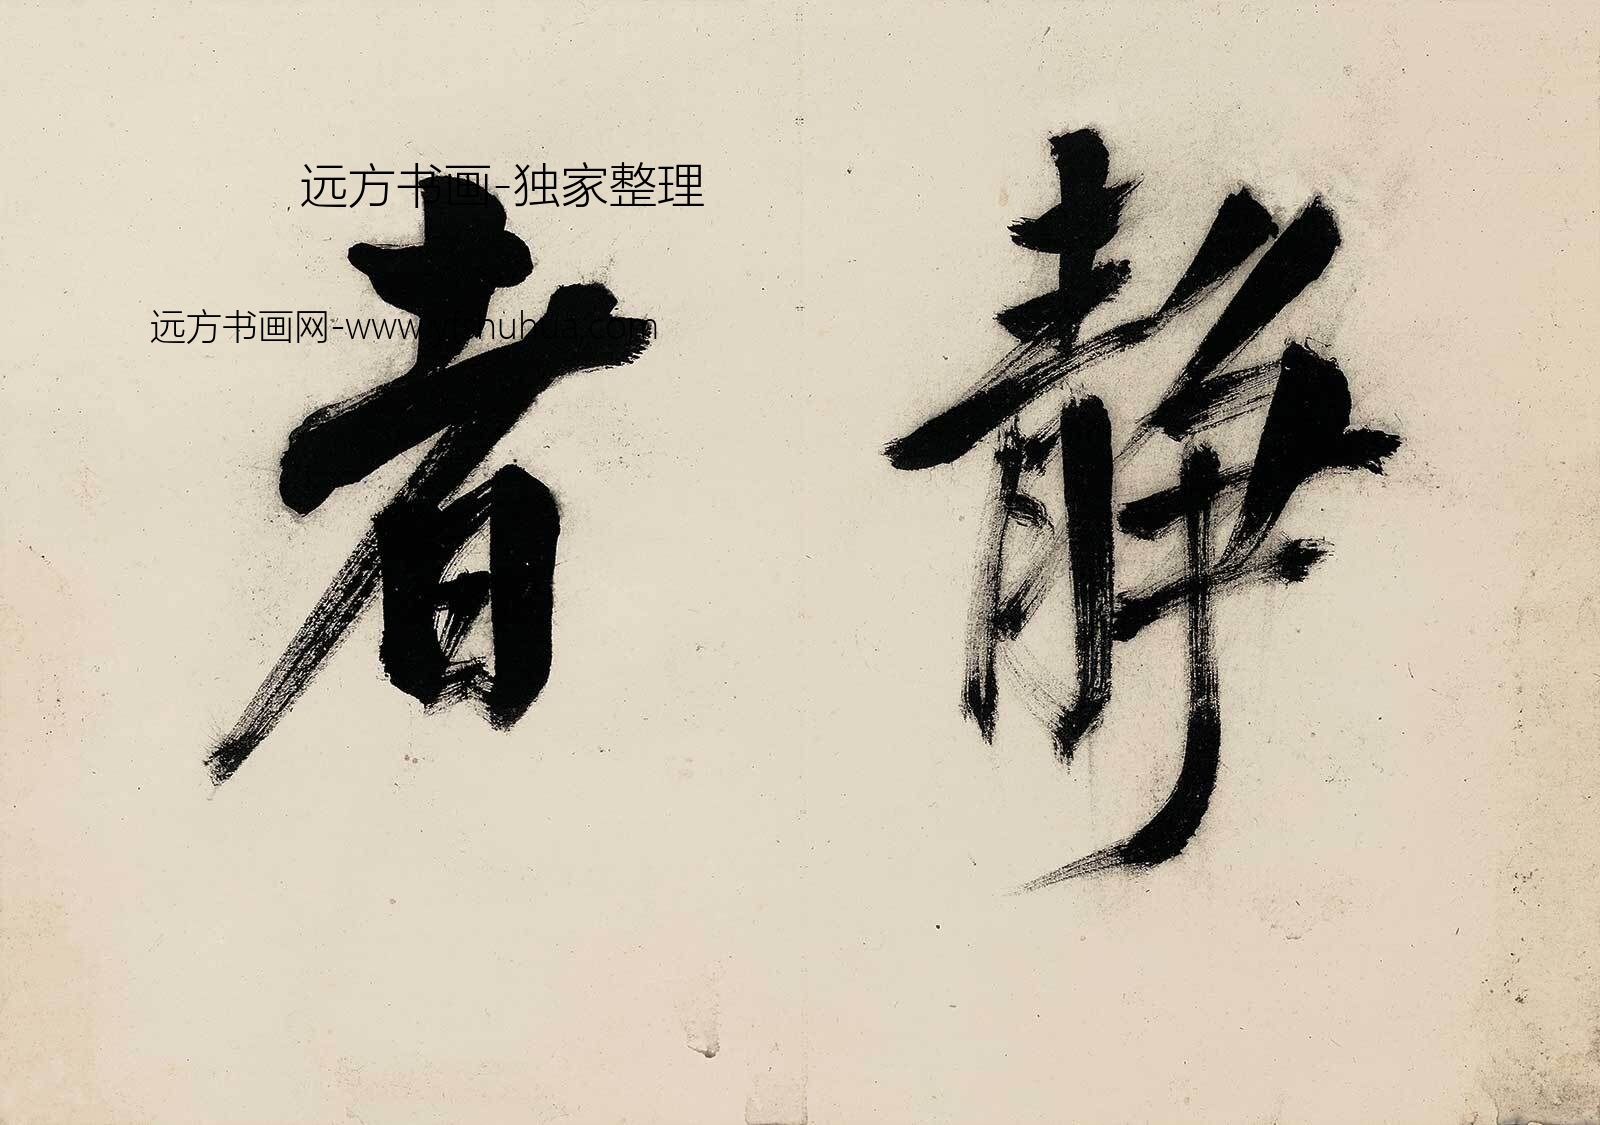 静
者
远方书画-独家整理
远方书画网-www.yfshuhua.com